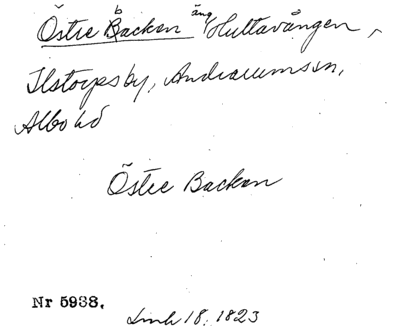 Östre Backen äng Huttavången,
Ilstorps by, Andrarums sn,
Albo hd
Östre Backen
Nr 5938.
Lmh 18. 1823